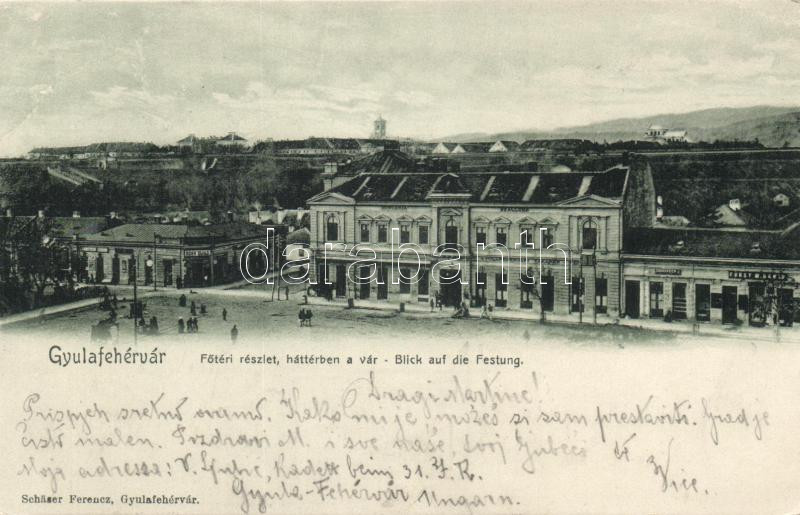 darabanth
Gyulafehérvár
Főtéri részlet, háttérben a vár - Blick auf die Festung.
Dragi Martine!
Prispjeh sretno ovamo. Kako mi je možeš si sam prestaviti. Grad je
čisto malen. Pozdravi M. i sve naše, tvoj ljubeći te
Moja adressa: V. Ljubic, Kadett beim 31. I. R. Vice.
Gyula-Fehérvár Ungarn.
Schäser Ferencz, Gyulafehérvár.